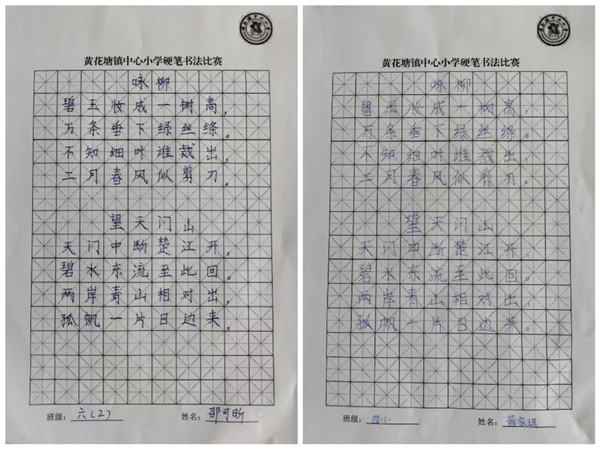 黄花塘镇中心小学硬笔书法比赛
咏柳
碧玉妆成一树高，
万条垂下绿丝绦。
不知细叶谁裁出，
二月春风似剪刀。
望天门山
天门中断楚江开，
碧水东流至此回。
两岸青山相对出，
孤帆一片日边来。
班级：六(2) 姓名：邵可昕
黄花塘镇中心小学硬笔书法比赛
咏柳
碧玉妆成一树高，
万条垂下绿丝绦。
不知细叶谁裁出，
二月春风似剪刀。
望天门山
天门中断楚江开，
碧水东流至此回。
两岸青山相对出，
孤帆一片日边来。
班级： 姓名：